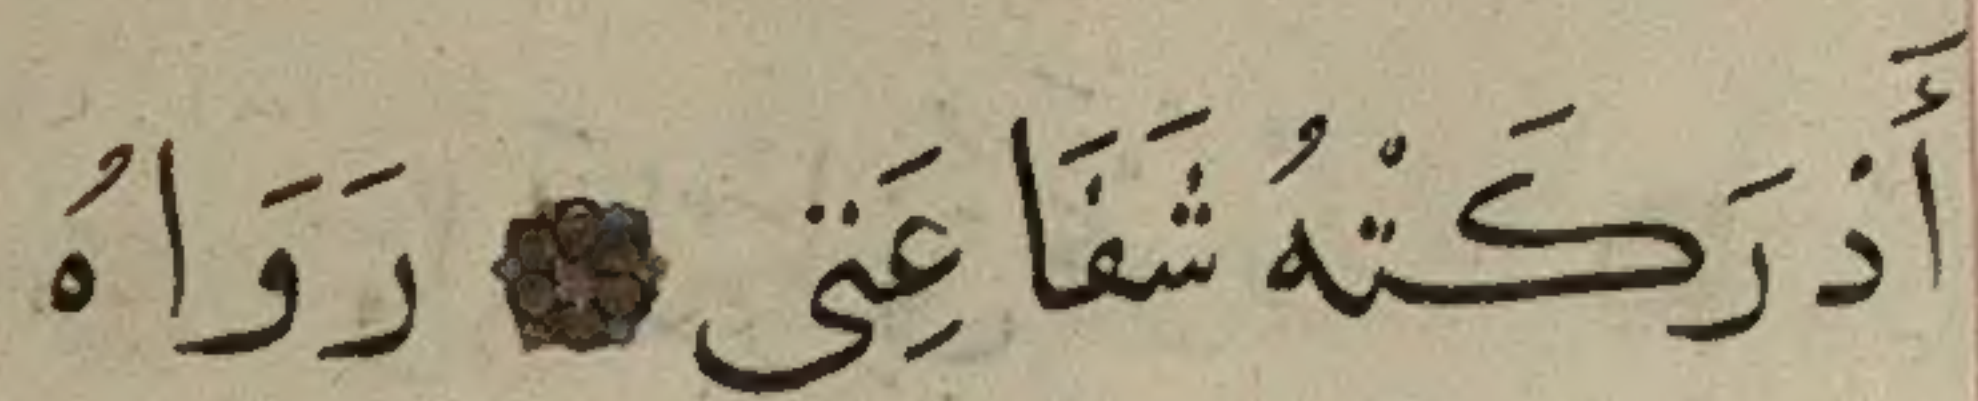 أَدْرَكَتْهُ شَفَاعَتِى رَوَاهُ